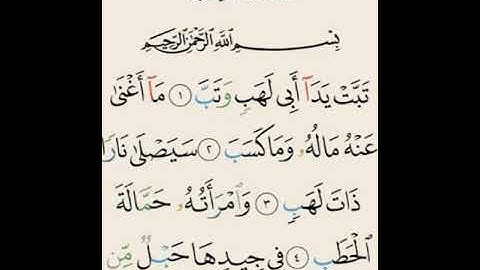 بِسْمِ اللَّهِ الرَّحْمَٰنِ الرَّحِيمِ
تَبَّتْ يَدَآ أَبِى لَهَبٍ وَتَبَّ ١ مَآ أَغْنَىٰ
عَنْهُ مَالُهُۥ وَمَا كَسَبَ ٢ سَيَصْلَىٰ نَارًا
ذَاتَ لَهَبٍ ٣ وَٱمْرَأَتُهُۥ حَمَّالَةَ
ٱلْحَطَبِ ٤ فِى جِيدِهَا حَبْلٌ مِّن